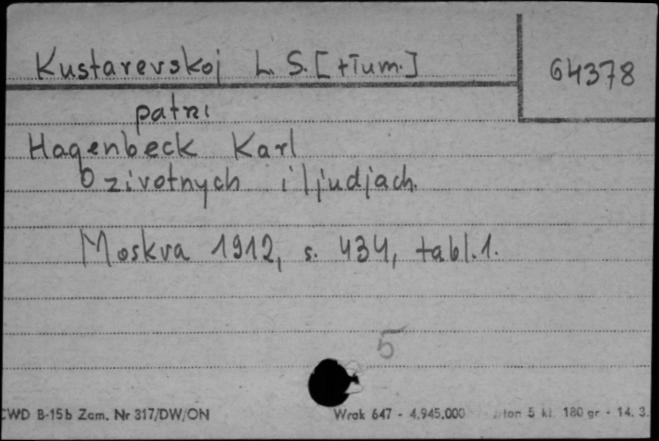 Kustarevskoj L. S. [tłum.]
64378
patrz
Hagenbeck Karl
O zivotnych i ljudjach.
Moskva 1912, s. 434, tabl. 1.
5
CWD B-15b Zam. Nr 317/DW/ON Wrak 647 - 4.945.000 ton 5 kl. 180 gr - 14. 3.